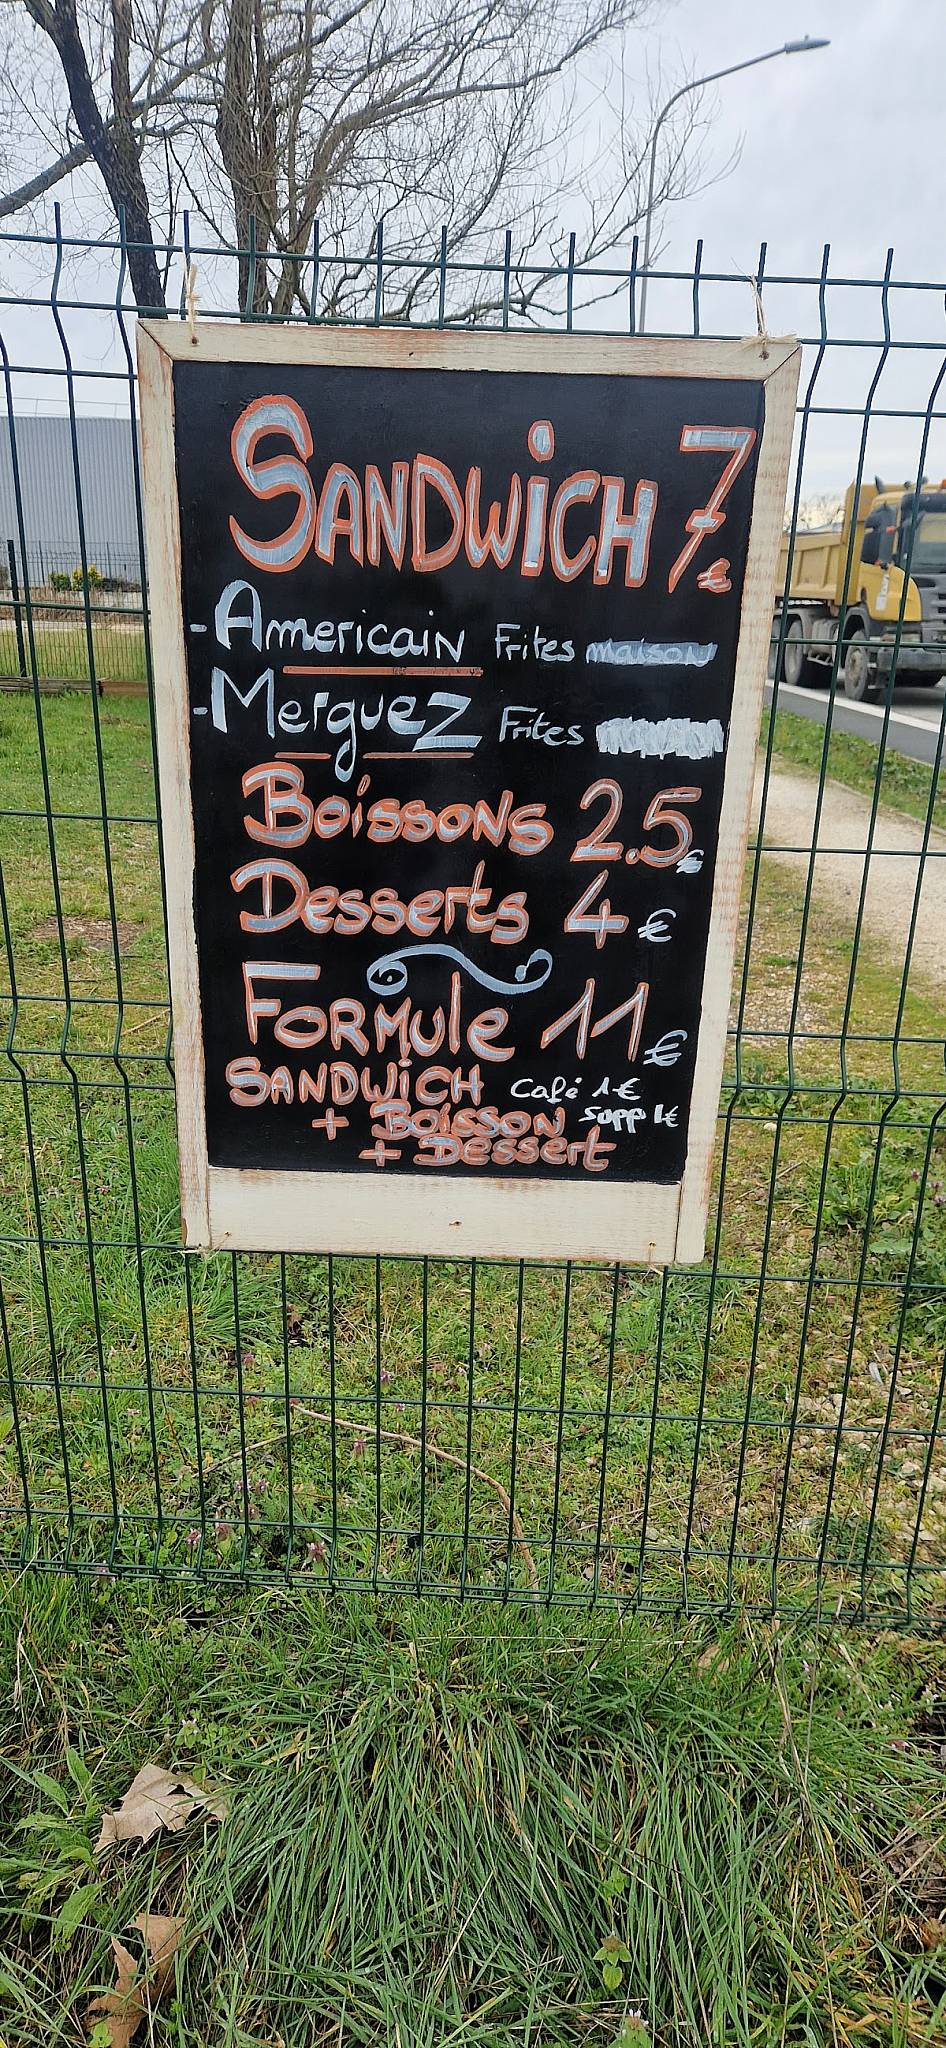 SANDWICH 7€
- Americain Frites maison
- Merguez Frites
Boissons 2.5€
Desserts 4€
FORMule 11€
SANDWICH
+ BOISSON
+ Dessert
Café 1€
Supp 1€